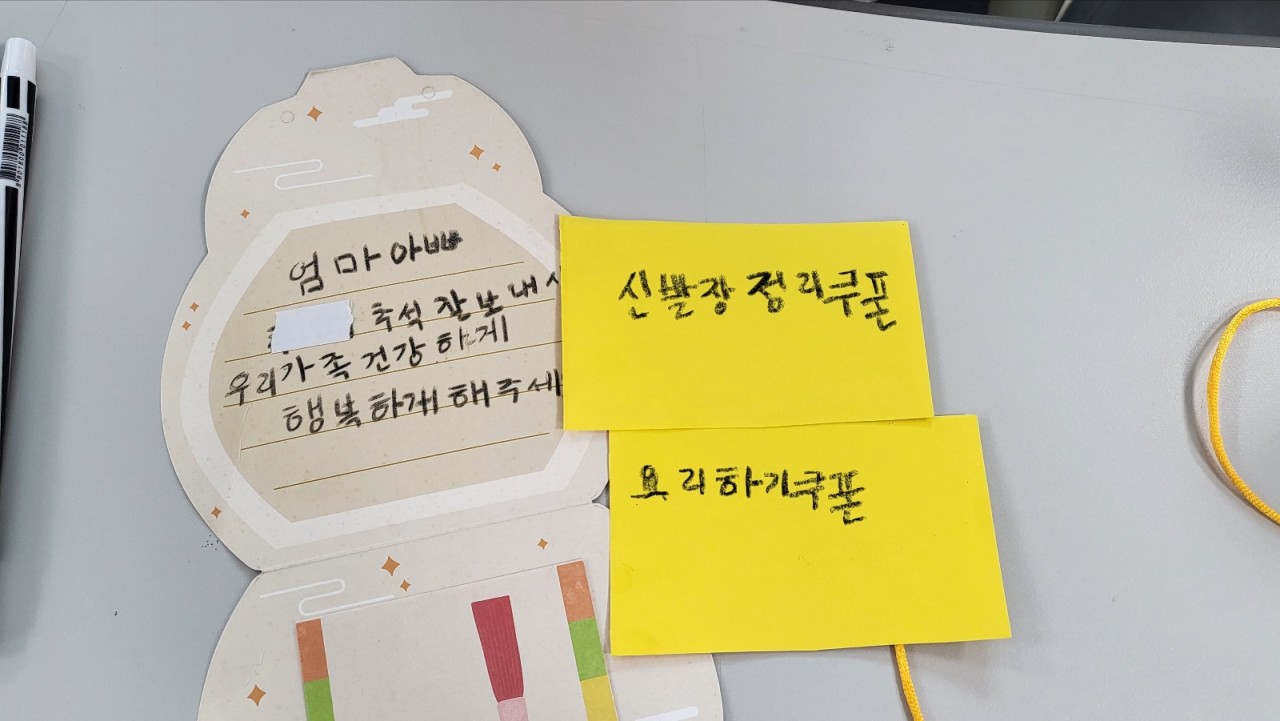 엄마아빠
추석 잘보내
우리가족건강하게
행복하게해주세
신발장정리쿠폰
요리하기쿠폰